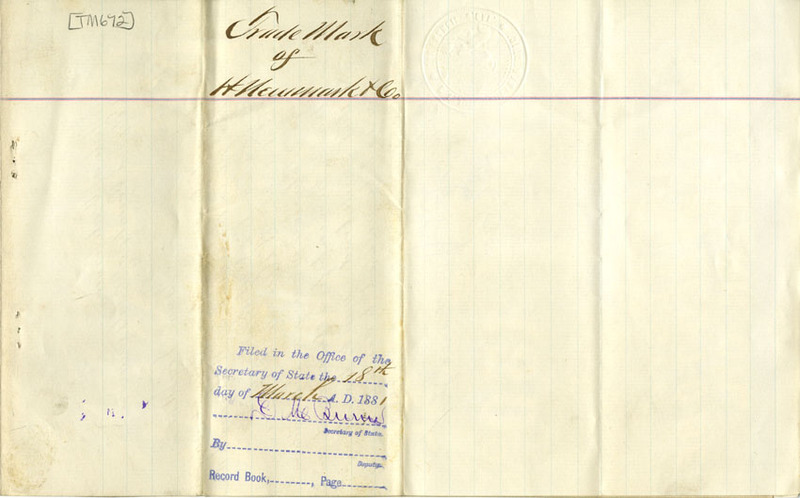 [TM672]
Trade Mark
of
H Newmark & Co
Filed in the Office of the
Secretary of State the 18th
day of March A. D. 1881
Secretary of State.
By
Deputy.
Record Book, , Page